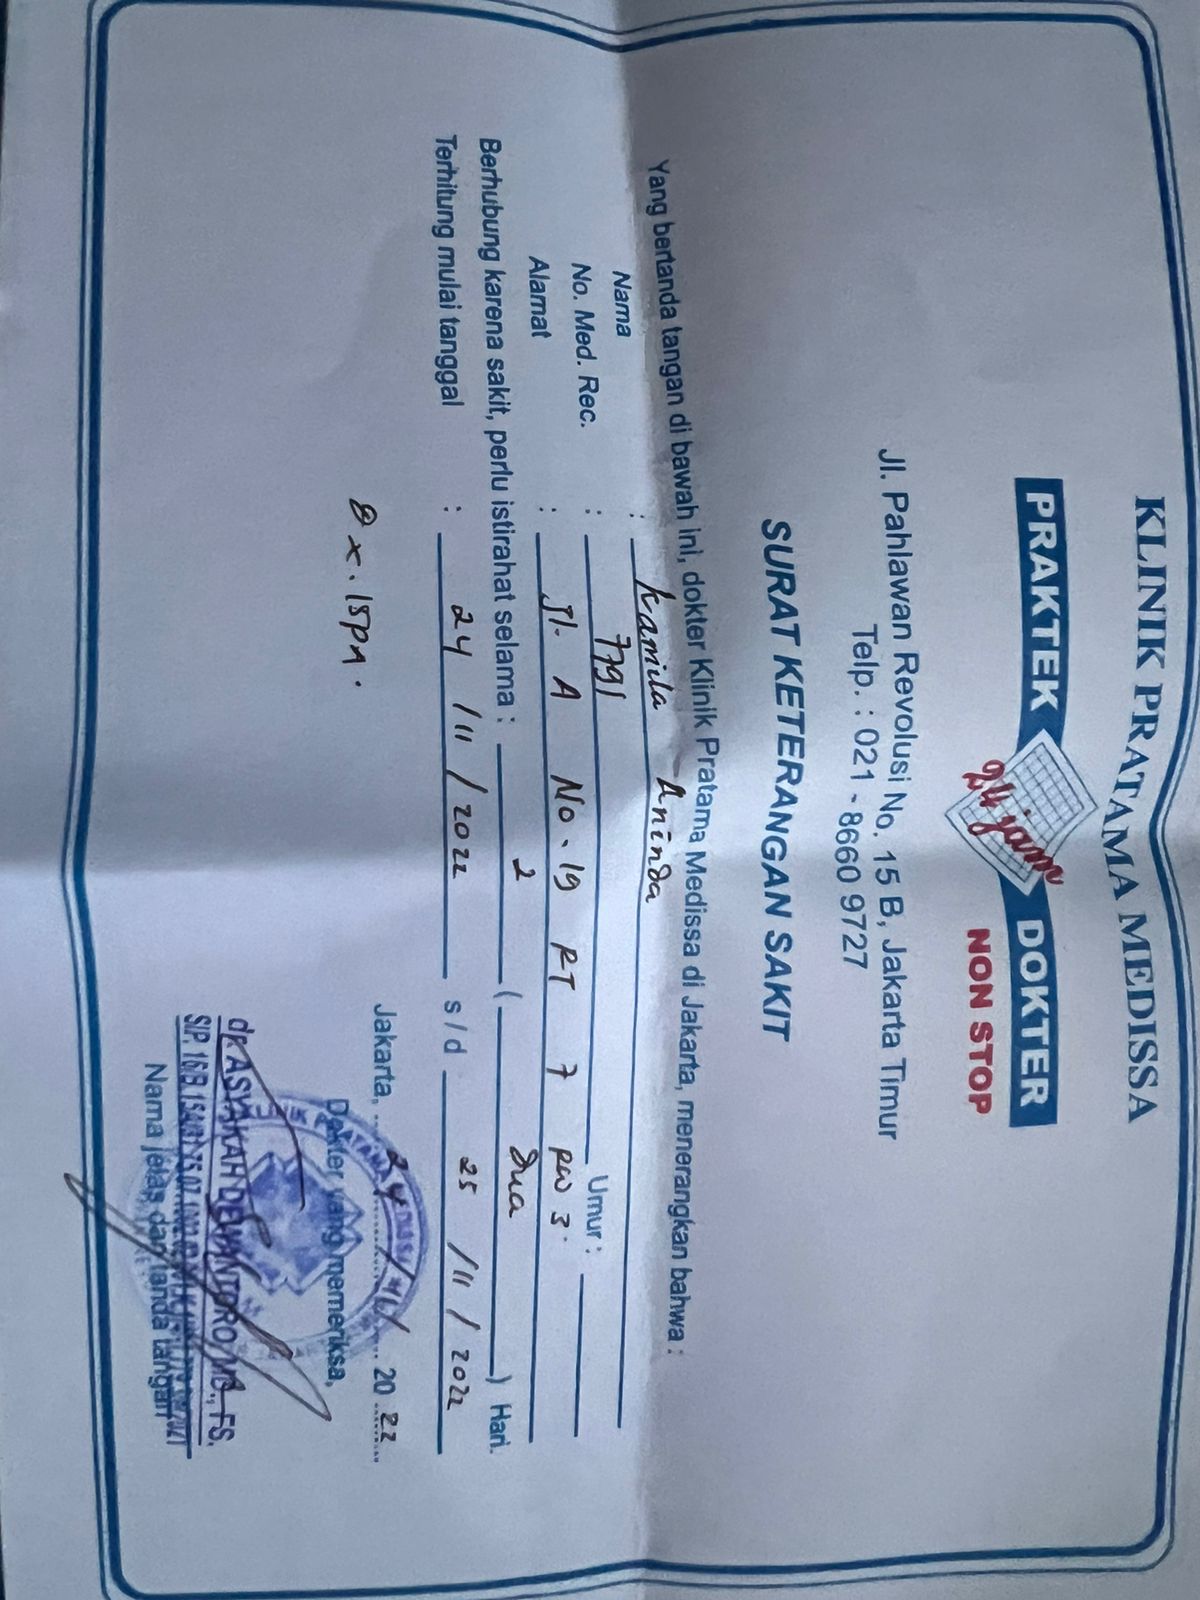 KLINIK PRATAMA MEDISSA
PRAKTEK 24 jam DOKTER
NON STOP
Jl. Pahlawan Revolusi No. 15 B, Jakarta Timur
Telp. : 021 - 8660 9727
SURAT KETERANGAN SAKIT
Yang bertanda tangan di bawah ini, dokter Klinik Pratama Medissa di Jakarta, menerangkan bahwa :
Nama : Kamila Aninda
No. Med. Rec. : 7791 Umur :
Alamat : Jl. A No. 19 RT 7 RW 3.
Berhubung karena sakit, perlu istirahat selama : 2 ( dua ) Hari.
Terhitung mulai tanggal : 24 / 11 / 2022 s/d 25 / 11 / 2022
Dx. ISPA.
Jakarta, 24 / 2022
Dokter yang memeriksa,
dr. ASYAKAH DEWANTORO, MB., FS.
Nama jelas dan tanda tangan